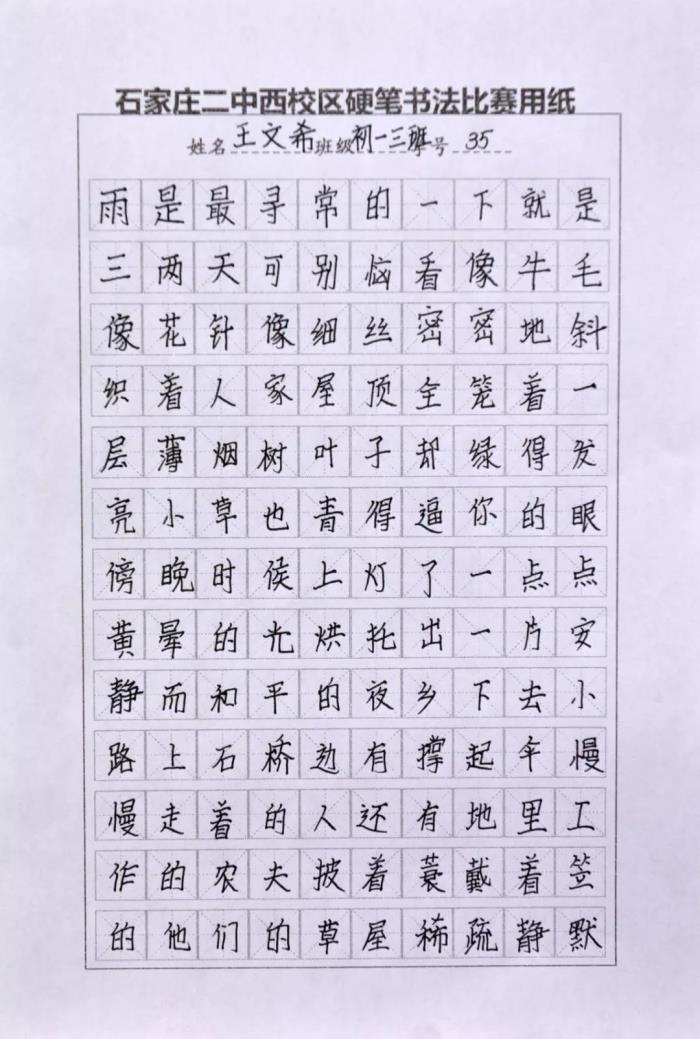 石家庄二中西校区硬笔书法比赛用纸
姓名 王文希 班级 初一三班 学号 35
雨是最寻常的一下就是
三两天可别恼看像牛毛
像花针像细丝密密地斜
织着人家屋顶全笼着一
层薄烟树叶子却绿得发
亮小草也青得逼你的眼
傍晚时候上灯了一点点
黄晕的光烘托出一片安
静而和平的夜乡下去小
路上石桥边有撑起伞慢
慢走着的人还有地里工
作的农夫披着蓑戴着笠
的他们的草屋稀疏静默